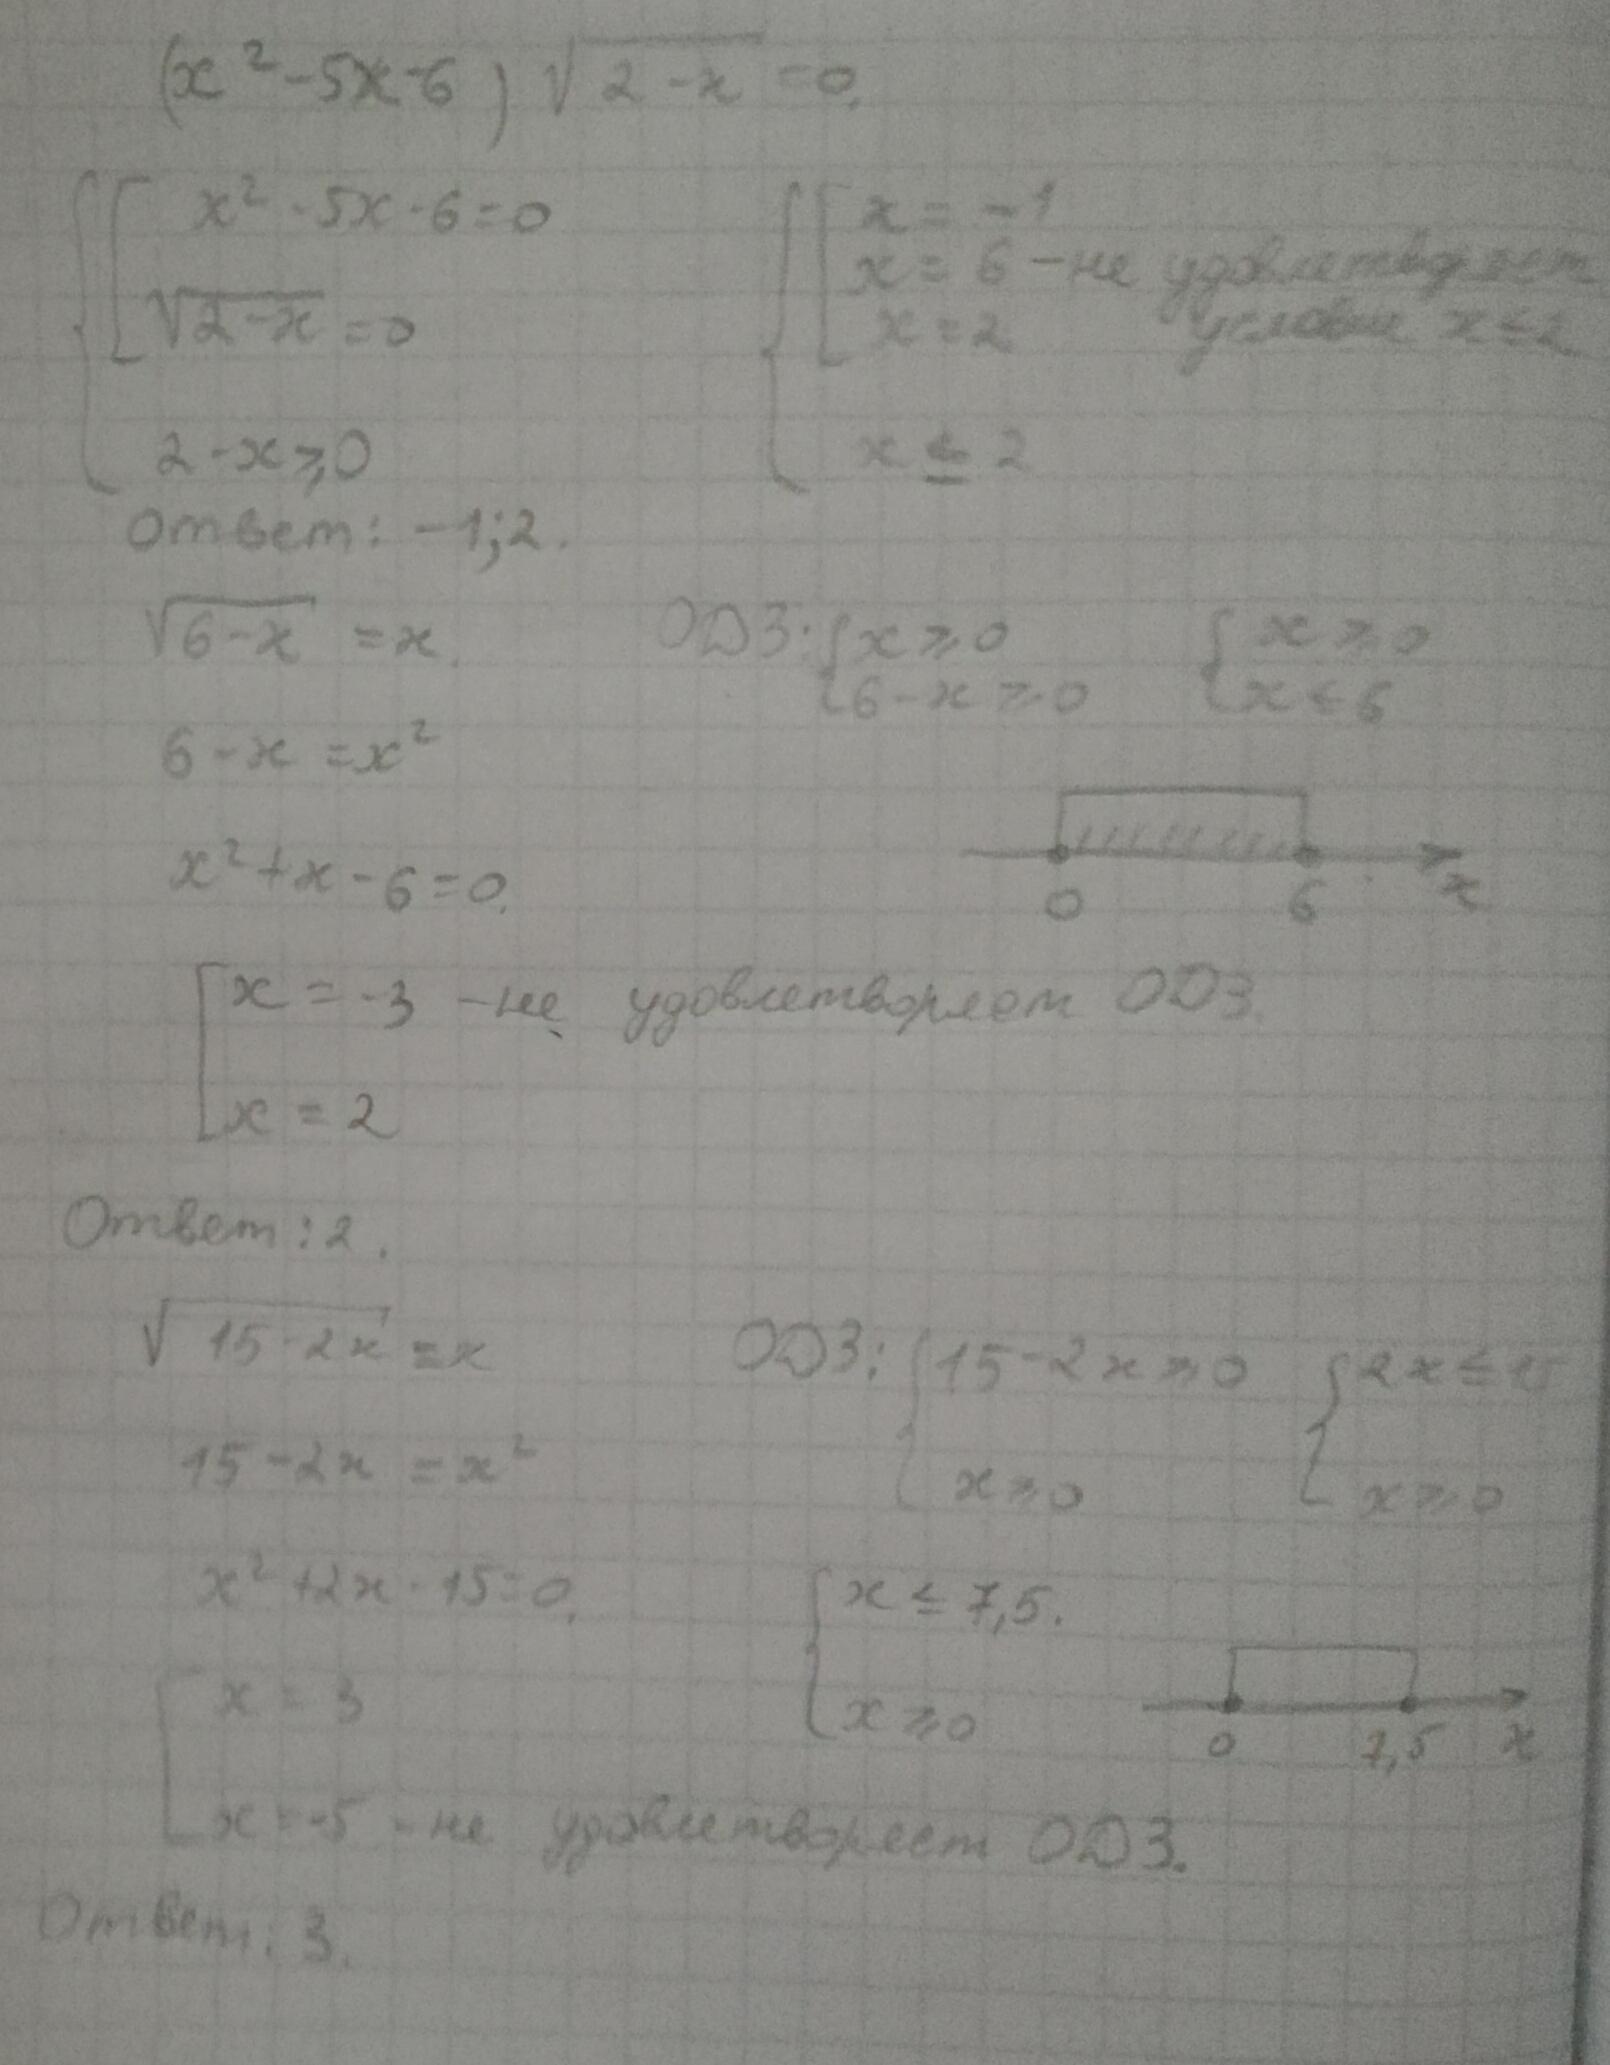 (x² - 5x - 6) √2 - x = 0.
x² - 5x - 6 = 0
√2 - x = 0
2 - x ⩾ 0
x = -1
x = 6 - не удовлетворяет
x = 2 условию x ≤ 2
x ≤ 2
Ответ: -1; 2.
√6 - x = x.
ОДЗ: x ⩾ 0
6 - x ⩾ 0
x ⩾ 0
x ≤ 6
6 - x = x²
x² + x - 6 = 0.
0 6 x
x = -3 - не удовлетворяет ОДЗ.
x = 2
Ответ: 2.
√15 - 2x = x
ОДЗ: 15 - 2x ⩾ 0
x ⩾ 0
2x ≤ 15
x ⩾ 0
15 - 2x = x²
x² + 2x - 15 = 0.
x ≤ 7,5.
x ⩾ 0
0 7,5 x
x = 3
x = -5 - не удовлетворяет ОДЗ.
Ответ: 3.